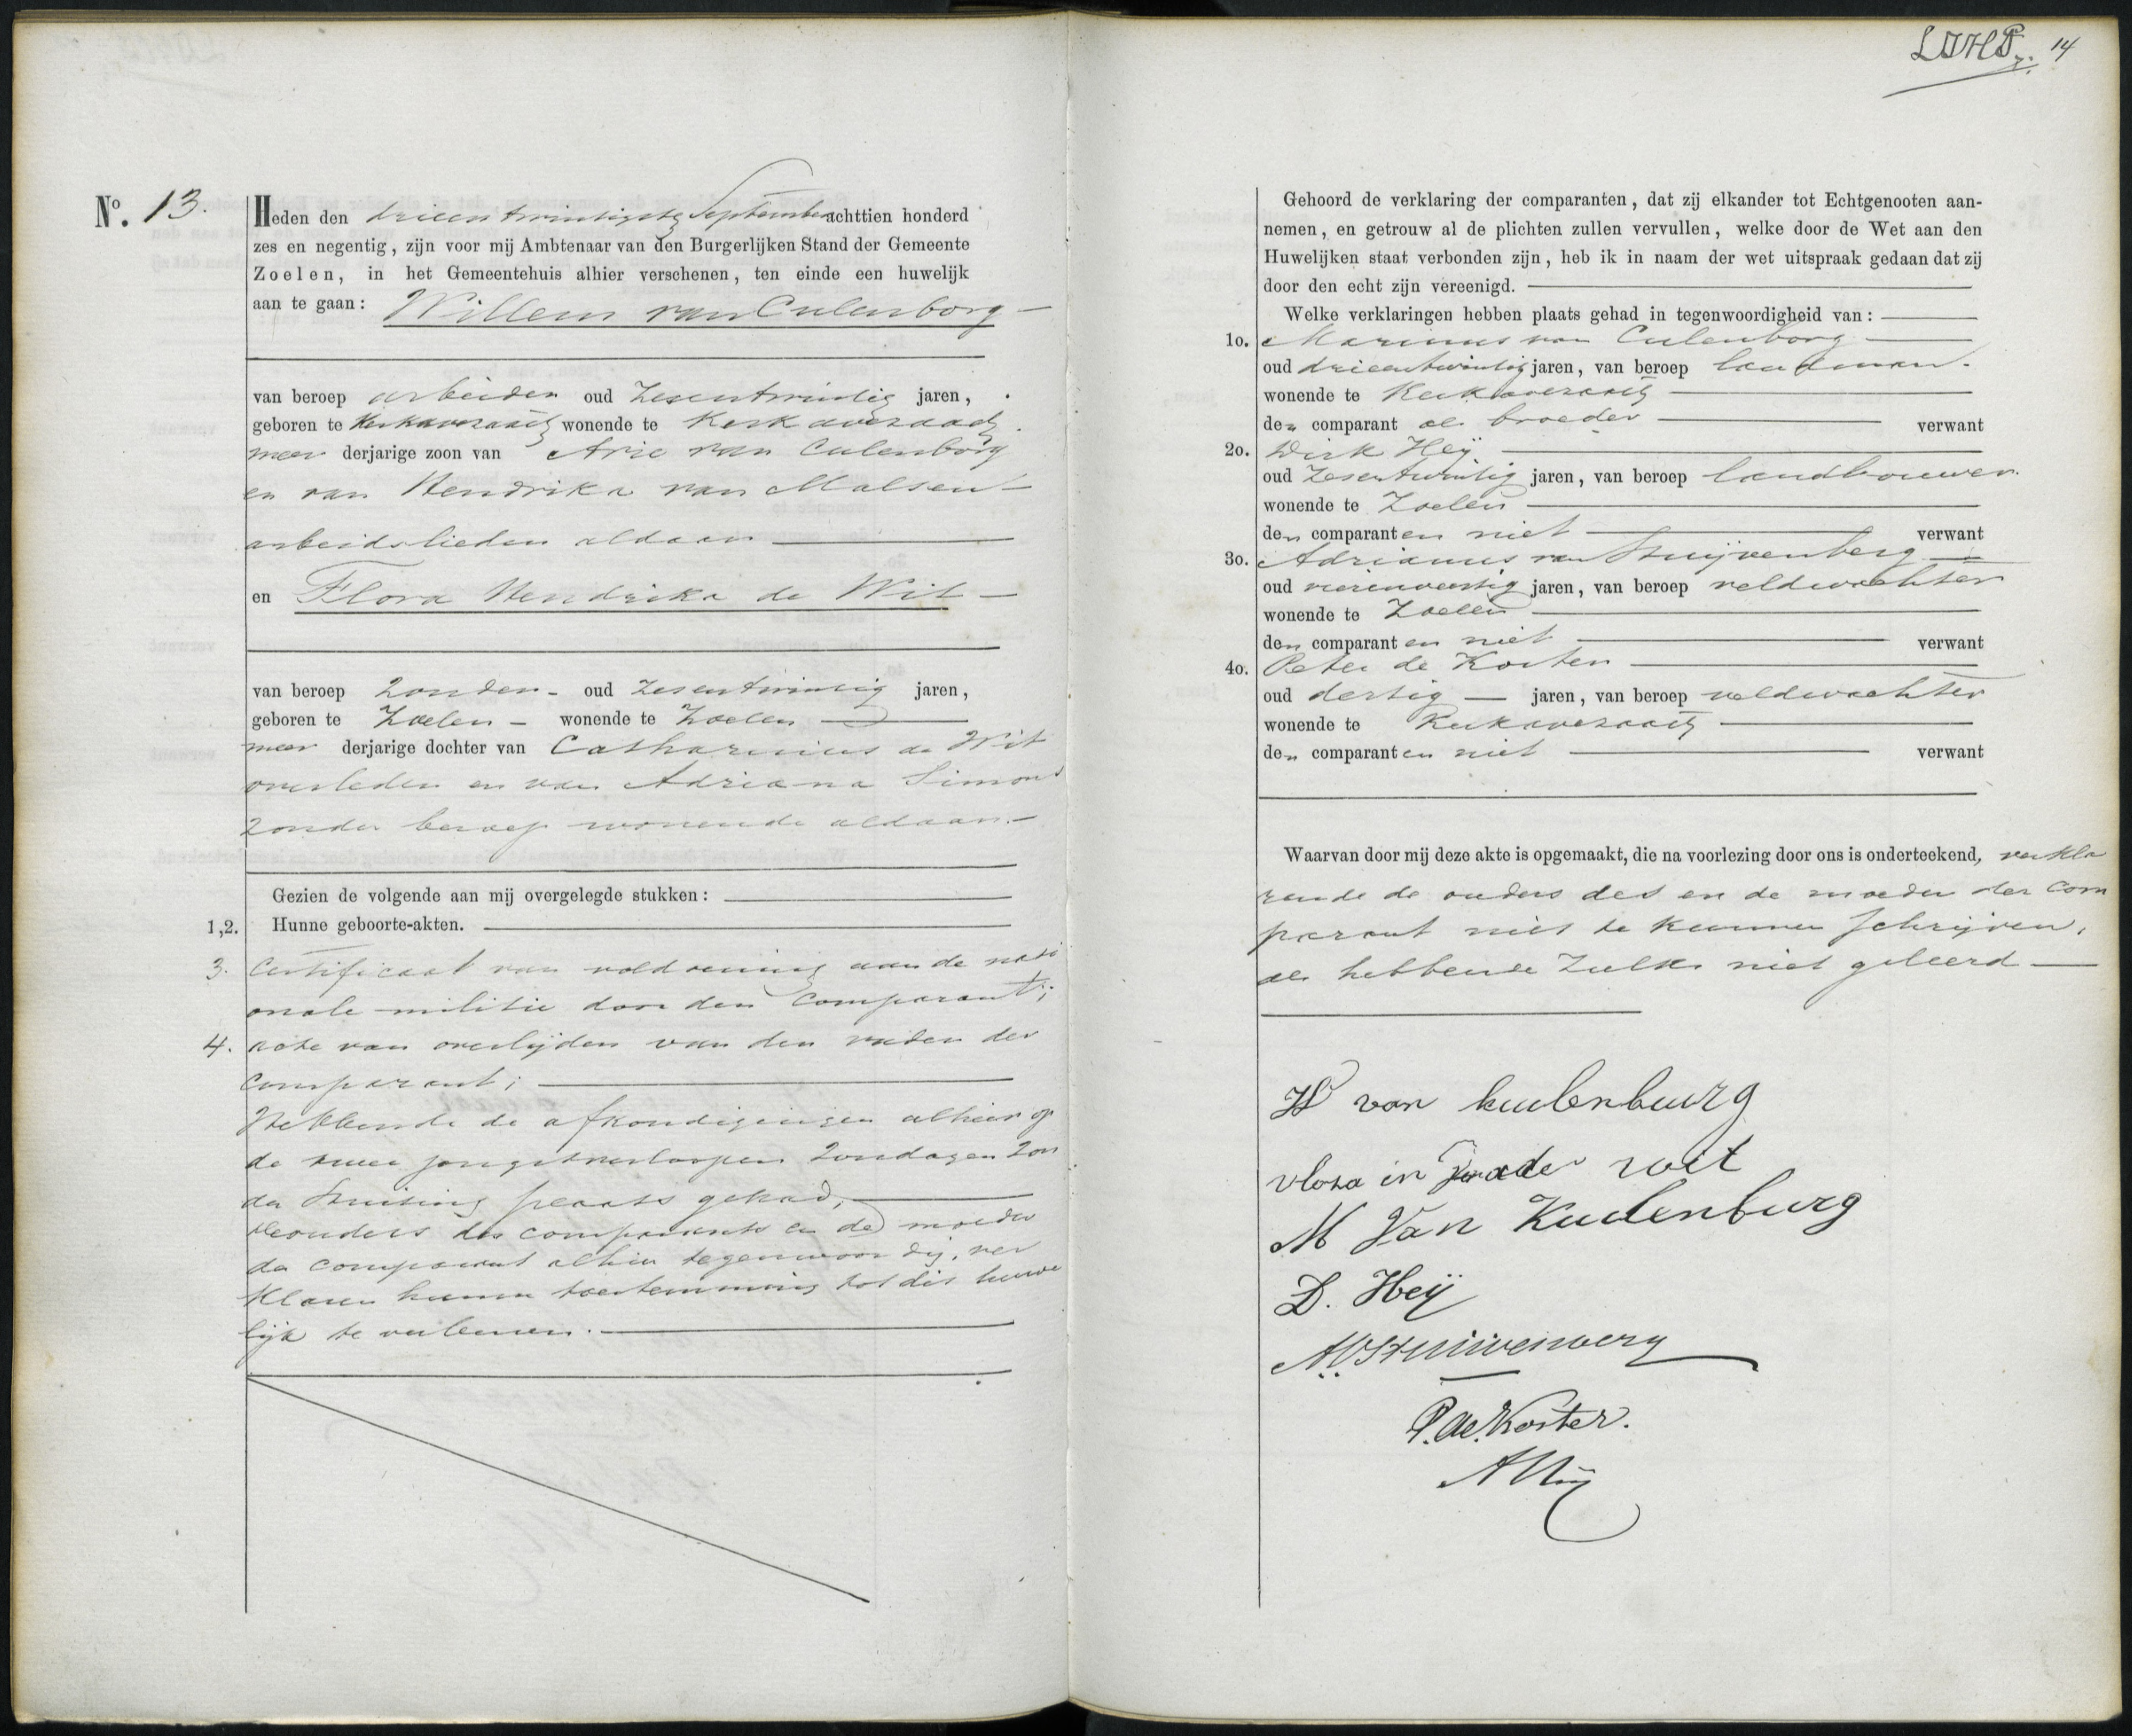 14
No. 13.
Heden den drieentwintigste September achttien honderd
zes en negentig, zijn voor mij Ambtenaar van den Burgerlijken Stand der Gemeente
Zoelen, in het Gemeentehuis alhier verschenen, ten einde een huwelijk
aan te gaan: Willem van Culenborg
van beroep arbeider oud zesentwintig jaren,
geboren te Kerkavezaath wonende te Kerkavezaath.
meer derjarige zoon van Arie van Culenborg
en van Hendrika van Malsen
arbeidslieden aldaar
en Flora Hendrika de Wit
van beroep zonder oud zesentwintig jaren,
geboren te Zoelen wonende te Zoelen
meer derjarige dochter van Catharinus de Wit
overleden en van Adriana Simons
zonder beroep wonende aldaar.
Gezien de volgende aan mij overgelegde stukken:
1,2. Hunne geboorte-akten.
3. Certificaat van voldoening aan de nati
onale militie door den comparant;
4. acte van overlijden van den vader der
comparant;
Hebbende de afkondigingen alhier op
de twee jongstverloopen Zondagen zon
der stuiting plaats gehad;
de ouders des comparants en de moeder
der comparant alhier tegenwoordig, ver
klaren hunne toestemming tot dit huwe
lijk te verleenen.
Gehoord de verklaring der comparanten, dat zij elkander tot Echtgenooten aan-
nemen, en getrouw al de plichten zullen vervullen, welke door de Wet aan den
Huwelijken staat verbonden zijn, heb ik in naam der wet uitspraak gedaan dat zij
door den echt zijn vereenigd.
Welke verklaringen hebben plaats gehad in tegenwoordigheid van:
1o. Marinus van Culenborg
oud drieentwintig jaren, van beroep landman.
wonende te Kerkavezaath
den comparant als broeder verwant
2o. Dirk Heij
oud zesentwintig jaren, van beroep landbouwer.
wonende te Zoelen
den comparanten niet verwant
3o. Adrianus van Stuijvenberg
oud vierenveertig jaren, van beroep veldwachter
wonende te Zoelen
den comparanten niet verwant
4o. Peter de Koster
oud dertig jaren, van beroep veldwachter
wonende te Kerkavezaath
den comparanten niet verwant
Waarvan door mij deze akte is opgemaakt, die na voorlezing door ons is onderteekend, verkla
rende de ouders des en de moeder der com
parant niet te kunnen schrijven,
als hebbende zulks niet geleerd
W van kulenburg
wit
M Van Kuulenburg
D. Heij
P. de Koster.